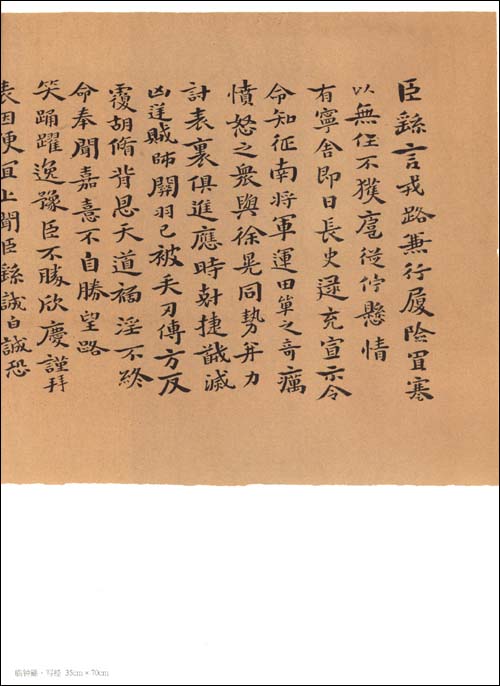 臣繇言戎路兼行履險冒寒
以無任不獲扈從佇懸情
有寧舍即日長史逯充宣示令
令知征南將軍運田單之奇厲
憤怒之衆與徐晃同勢并力
討表裏俱進應時剋捷馘滅
凶逆賊帥關羽已被矢刃傅方反
覆胡脩背恩天道禍淫不終
命奉聞嘉憙不自勝望路
笑踊躍逸豫臣不勝欣慶謹拜
表因便宜上聞臣繇誠誠恐
临钟繇· 35cm × 70cm